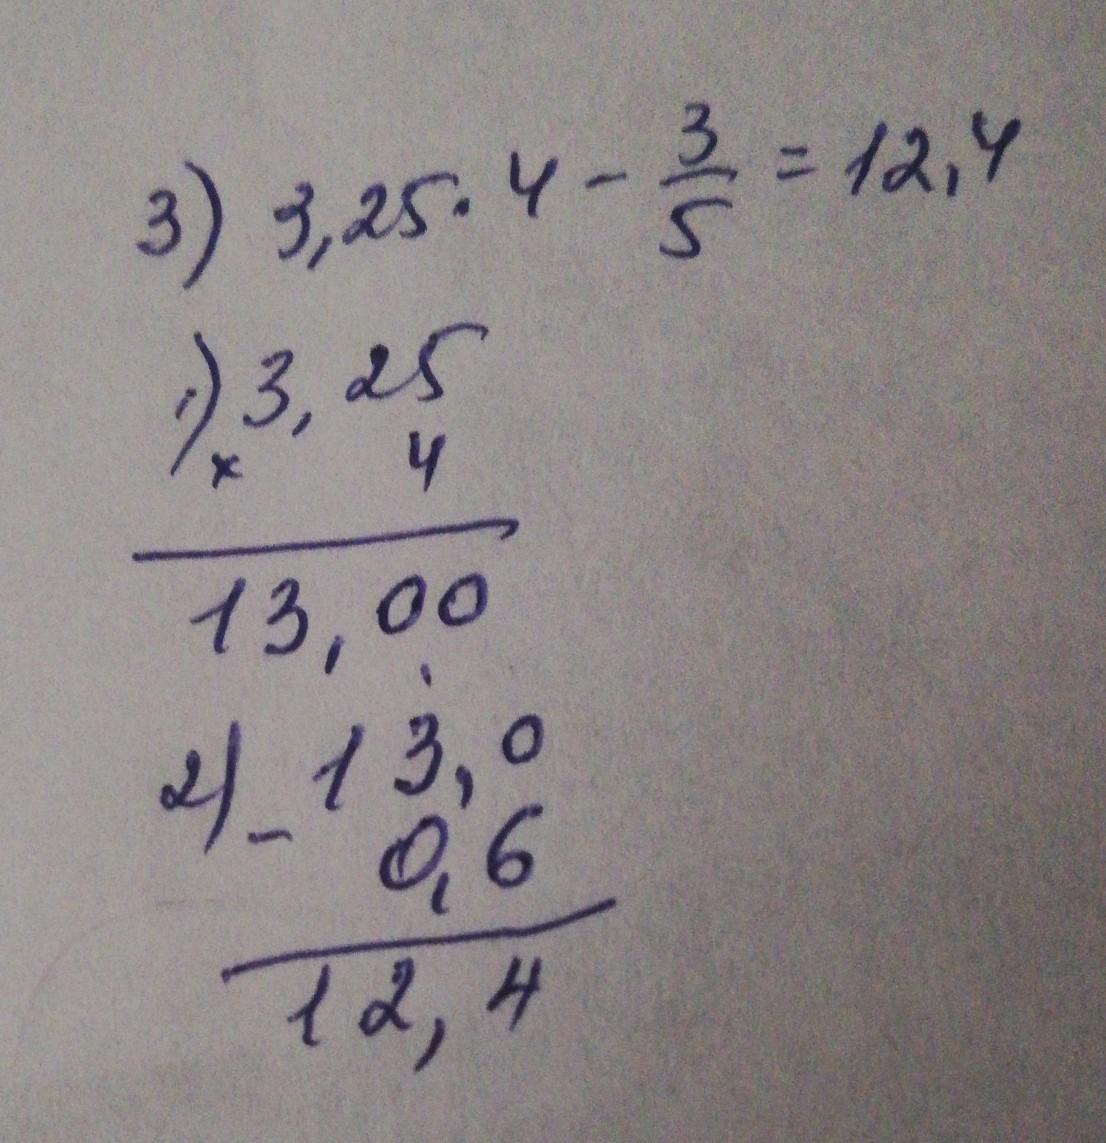 3) 3,25 · 4 - 3/5 = 12,4
1) 3,25
× 4
13,00
2) - 13,0
0,6
12,4